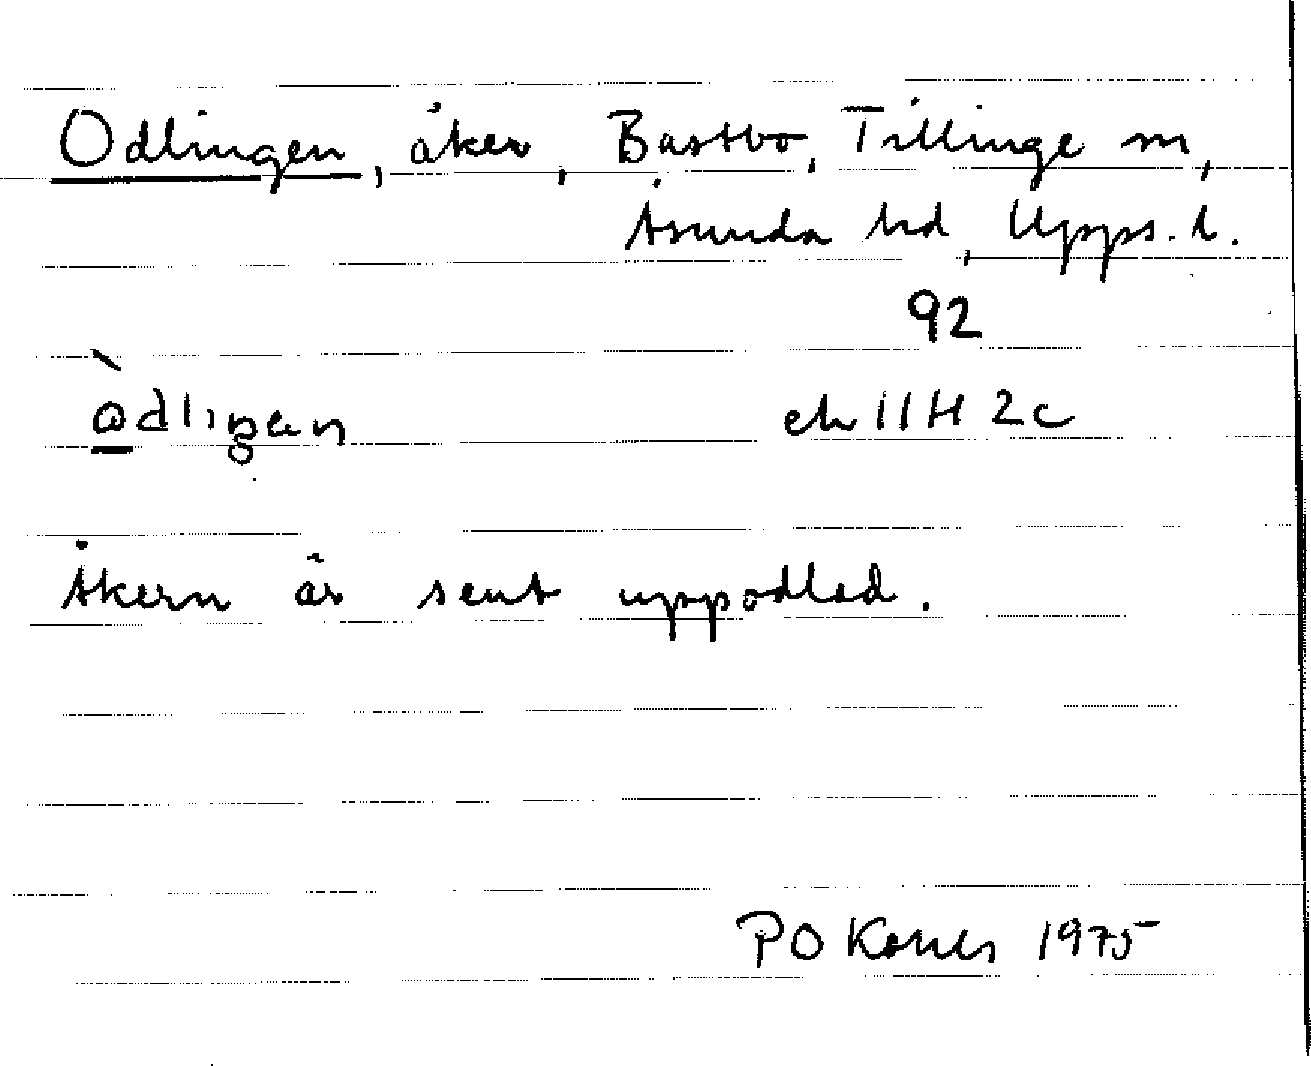 Odlingen, åker, Bastbo, Tillinge sn,
Åsunda hd, Upps. l.
92
òdlıŋen ek 11H 2c
Åkern är sent uppodlad.
PO 1975